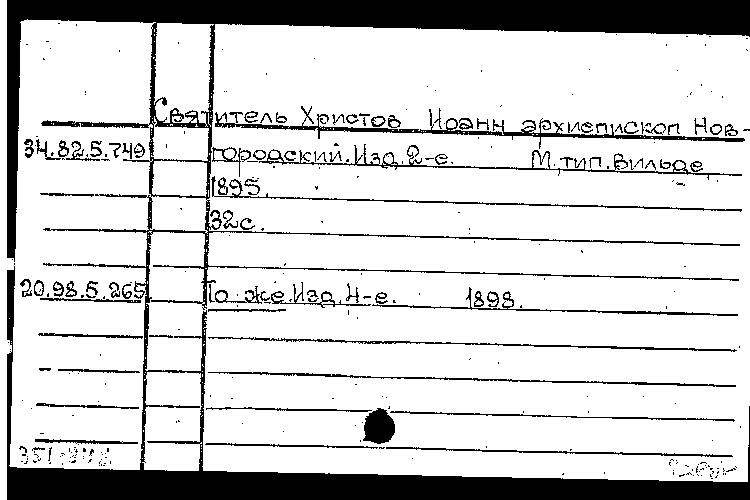 Святитель Христов Иоанн архиепископ Нов-
34.82.5.749 городский.Изд.2-е. М.тип.Вильде,
1895.
32с.
20.98.5.265 То же.Изд.4-е. 1898.